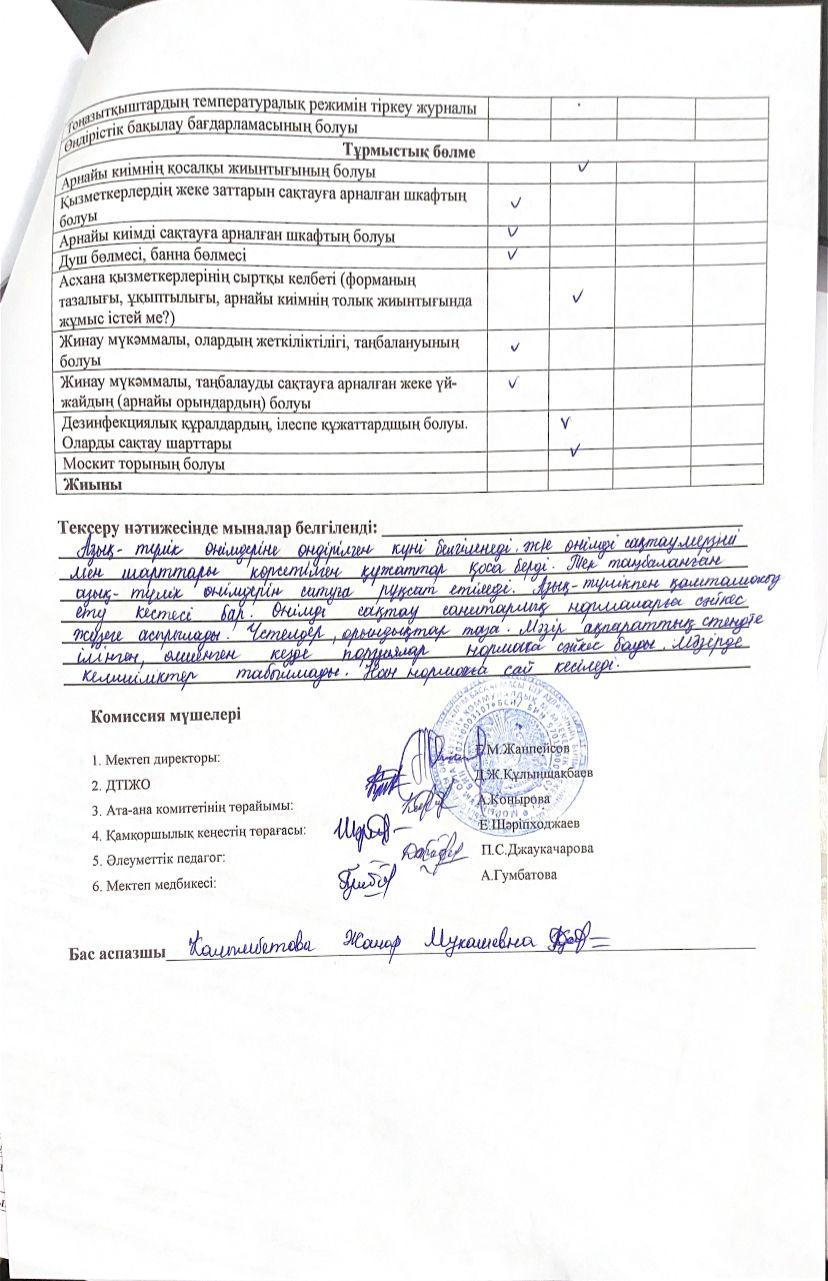 Тоңазытқыштардың температуралық режимін тіркеу журналы
Өндірістік бақылау бағдарламасының болуы
Тұрмыстық бөлме
Арнайы киімнің қосалқы жиынтығының болуы
Қызметкерлердің жеке заттарын сақтауға арналған шкафтың
болуы
Арнайы киімді сақтауға арналған шкафтың болуы
Душ бөлмесі, банна бөлмесі
Асхана қызметкерлерінің сыртқы келбеті (форманың
тазалығы, ұқыптылығы, арнайы киімнің толық жиынтығында
жұмыс істей ме?)
Жинау мүкәммалы, олардың жеткіліктілігі, таңбалануының
болуы
Жинау мүкәммалы, таңбалауды сақтауға арналған жеке үй-
жайдың (арнайы орындардың) болуы
Дезинфекциялық құралдардың, ілеспе құжаттардщың болуы.
Оларды сақтау шарттары
Москит торының болуы
Жиыны
Тексеру нәтижесінде мыналар белгіленді:
Азық-түлік өнімдеріне өндірілген күні белгіленеді, және өнімді сақтау мерзімі
мен шарттары көрсетілген құжаттар қоса берді. Тек таңбаланған
азық-түлік өнімдерін сатуға рұқсат етіледі. Азық-түлікпен қамтамасыз
ету кестесі бар. Өнімді сақтау санитарлық нормаларға сәйкес
жүзеге асырылады. Үстелдер, орындықтар таза. Мәзір ақпараттық стендте
ілінген, өлшенген кезде порциялар нормаға сәйкес болды. Мәзірде
келіспіліктер табылмады. Нан нормаға сай кесіледі.
Комиссия мүшелері
1. Мектеп директоры: Е.М.Жанпейсов
2. ДТІЖО Д.Ж.Құлыншақбаев
3. Ата-ана комитетінің төрайымы: А.Конырова
4. Қамқоршылық кеңестің төрағасы: Е.Шәріпходжаев
5. Әлеуметтік педагог: П.С.Джаукачарова
6. Мектеп медбикесі: А.Гумбатова
Бас аспазшы Жанар Мукашевна